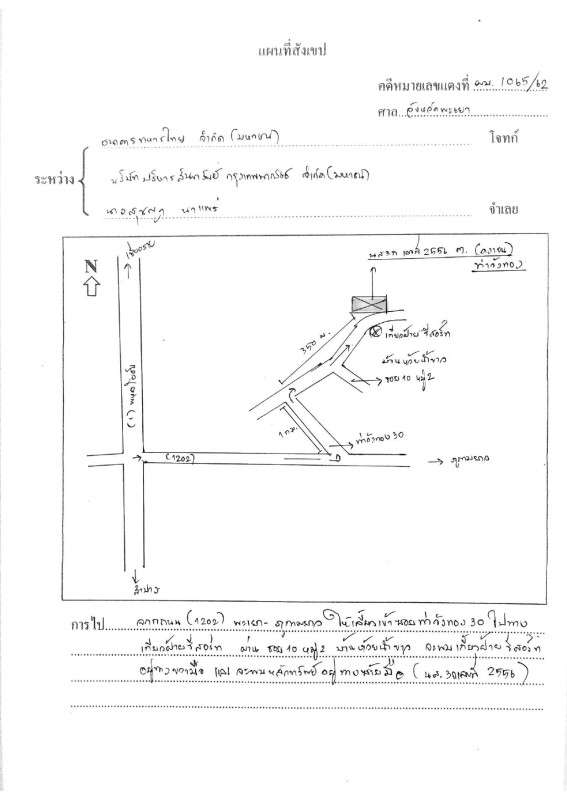 แผนที่สังเขป
คดีหมายเลขแดงที่ ผบ. 1065/62
ศาล จังหวัดพะเยา
ธนาคารทหารไทย จำกัด (มหาชน) โจทก์
ระหว่าง
บริษัท บริหารสินทรัพย์ กรุงเทพพาณิชย์ จำกัด (มหาชน)
จำเลย
เชียงราย
2556 ต.
ท่าวังทอง
N
350 ม.
เกี๋ยวฝ้าย รีสอร์ท
บ้านห้วยน้ำขาว
ซอย 10 หมู่ 2
(1) พหลโยธิน
1 กม.
ท่าวังทอง 30
(1202)
ภูกามยาว
ลำปาง
การไป จากถนน (1202) พะเยา - ภูกามยาว ให้เลี้ยวเข้าซอยท่าวังทอง 30 ไปทาง
เกี๋ยวฝ้ายรีสอร์ท ผ่าน ซอย 10 หมู่ 2 บ้านห้วยน้ำขาว จะพบเกี๋ยวฝ้าย รีสอร์ท
อยู่ทางขวามือ และ จะพบหลักทรัพย์ อยู่ทางซ้ายมือ ( 2556 )